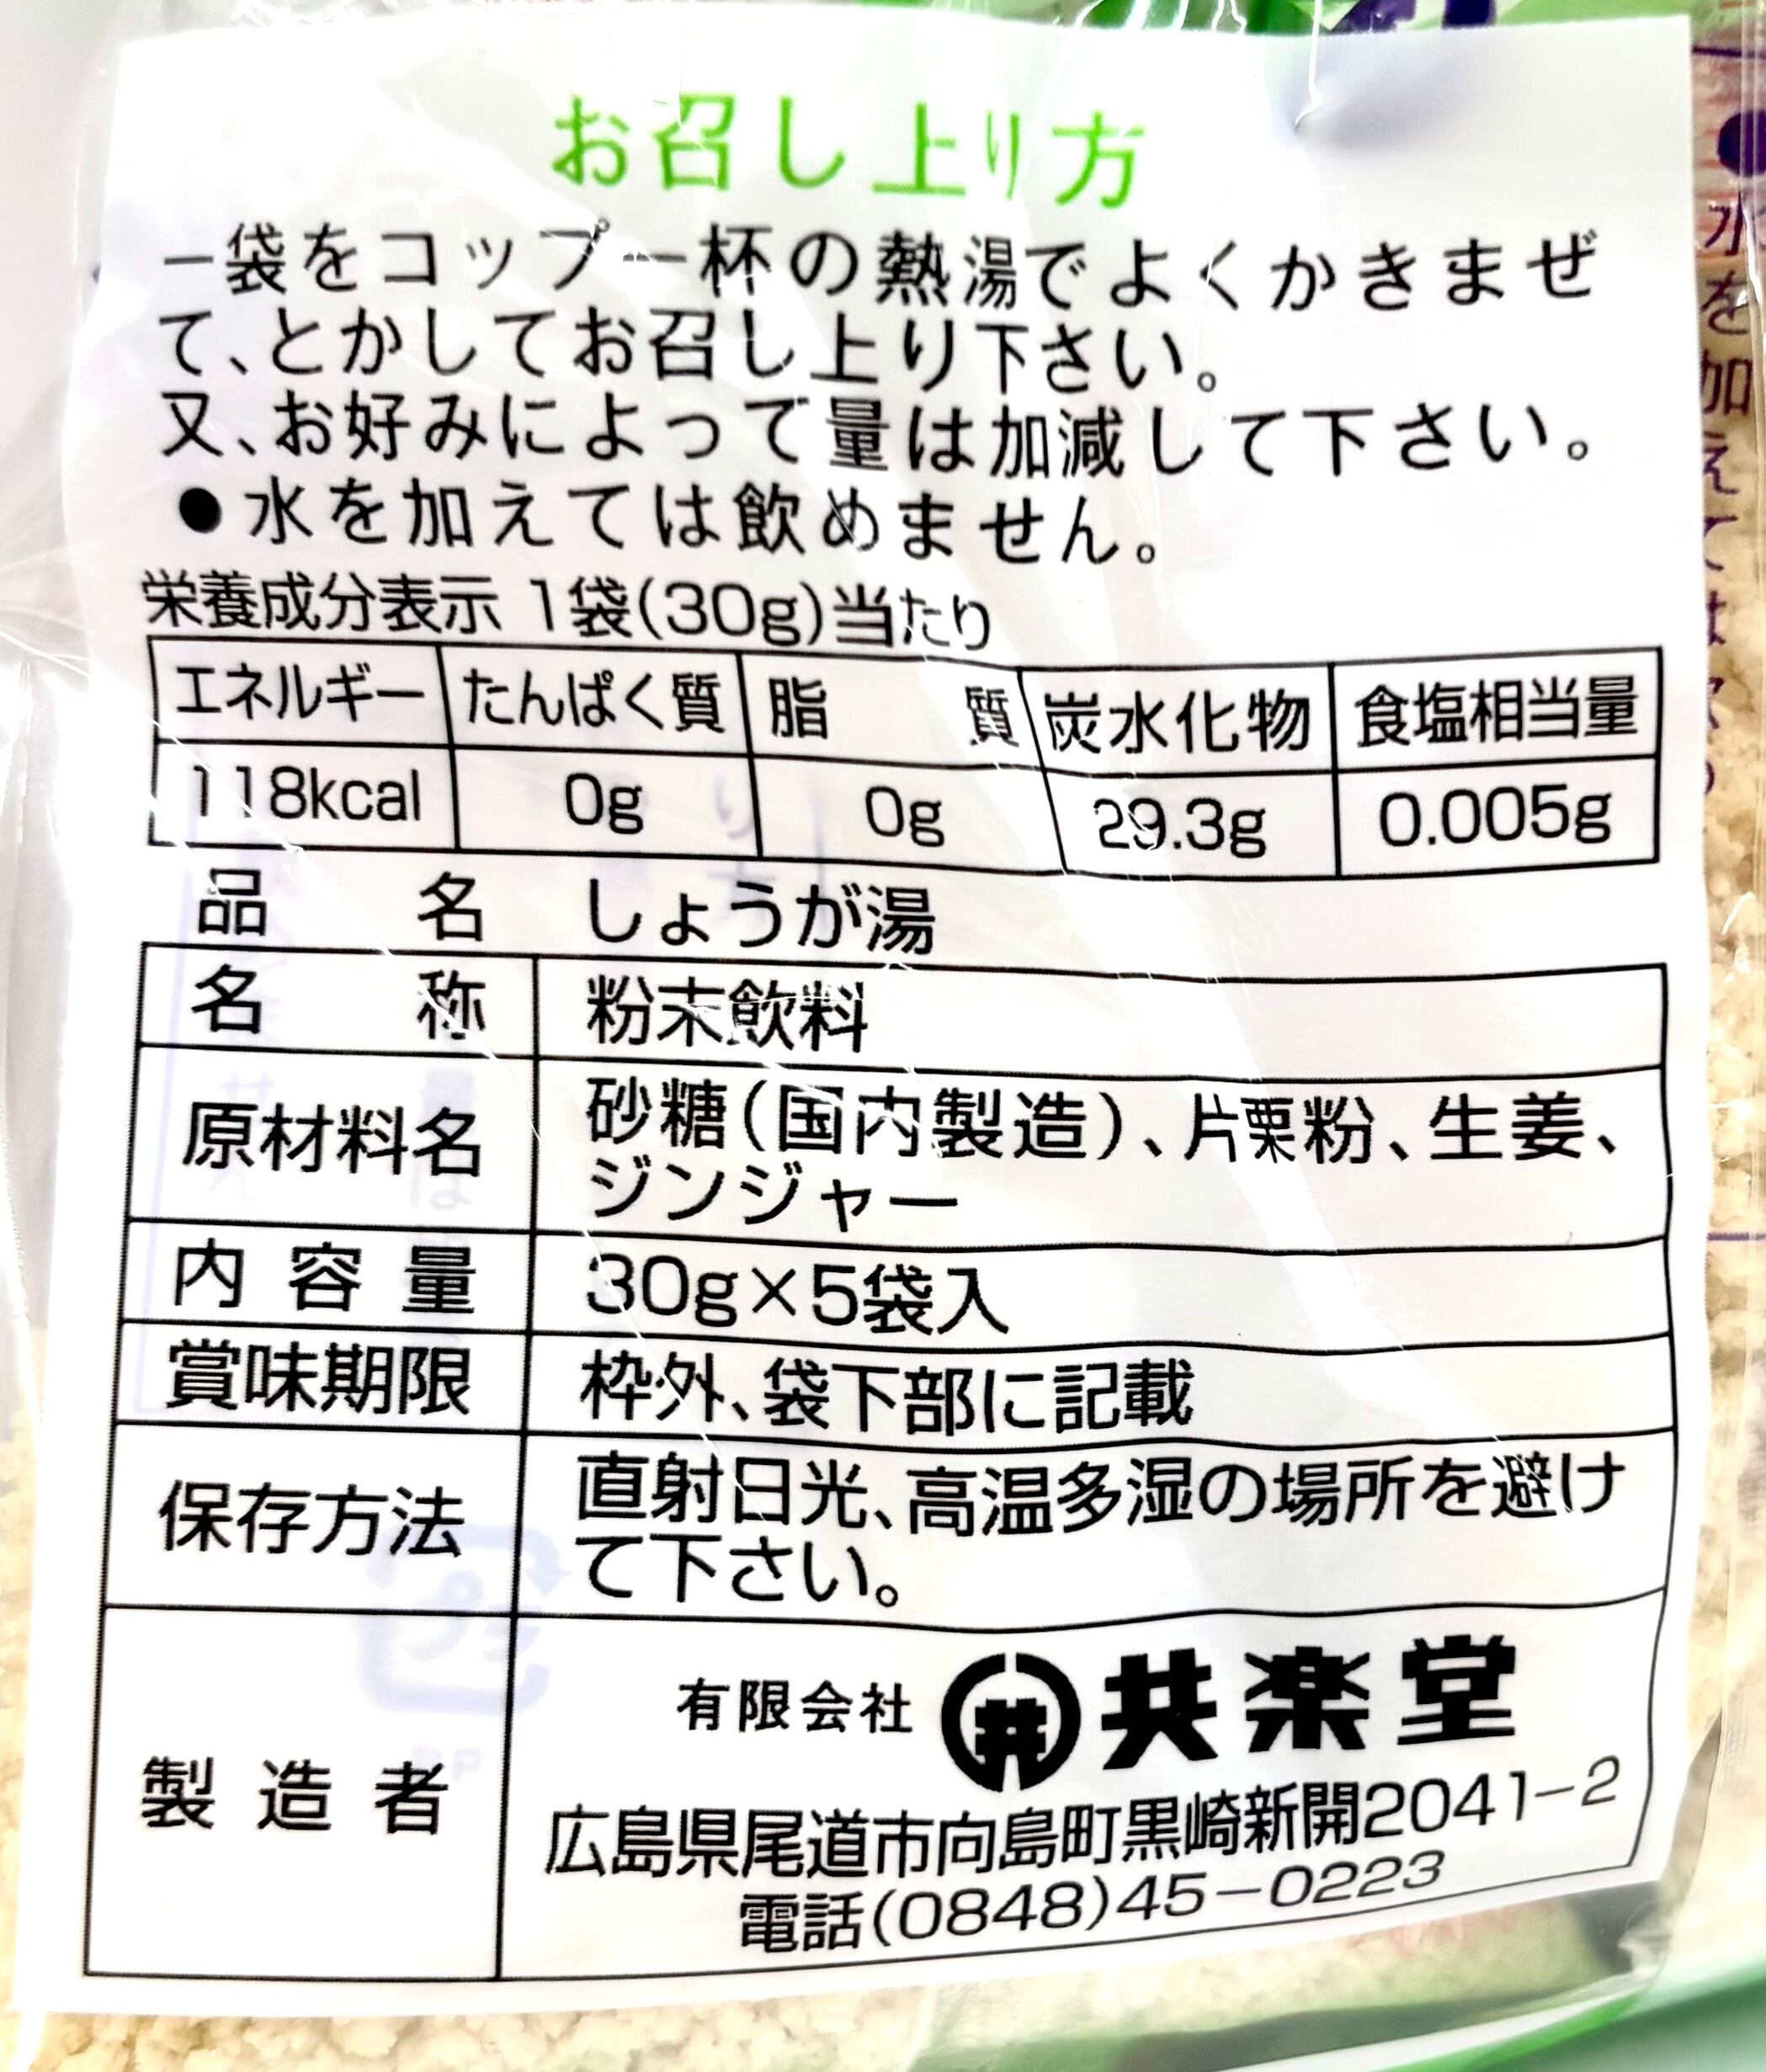 お召し上り方
一袋をコップ一杯の熱湯でよくかきまぜ
て、とかしてお召し上り下さい。
又、お好みによって量は加減して下さい。
●水を加えては飲めません。
栄養成分表示 1袋(30g)当たり
エネルギー たんぱく質 脂質 炭水化物 食塩相当量
118kcal 0g 0g 29.3g 0.005g
品名 しょうが湯
名称 粉末飲料
原材料名 砂糖(国内製造)、片栗粉、生姜、
ジンジャー
内容量 30g×5袋入
賞味期限 枠外、袋下部に記載
保存方法 直射日光、高温多湿の場所を避け
て下さい。
製造者 有限会社 井 共楽堂
広島県尾道市向島町黒崎新開2041-2
電話(0848)45-0223
●水を加えては飲め